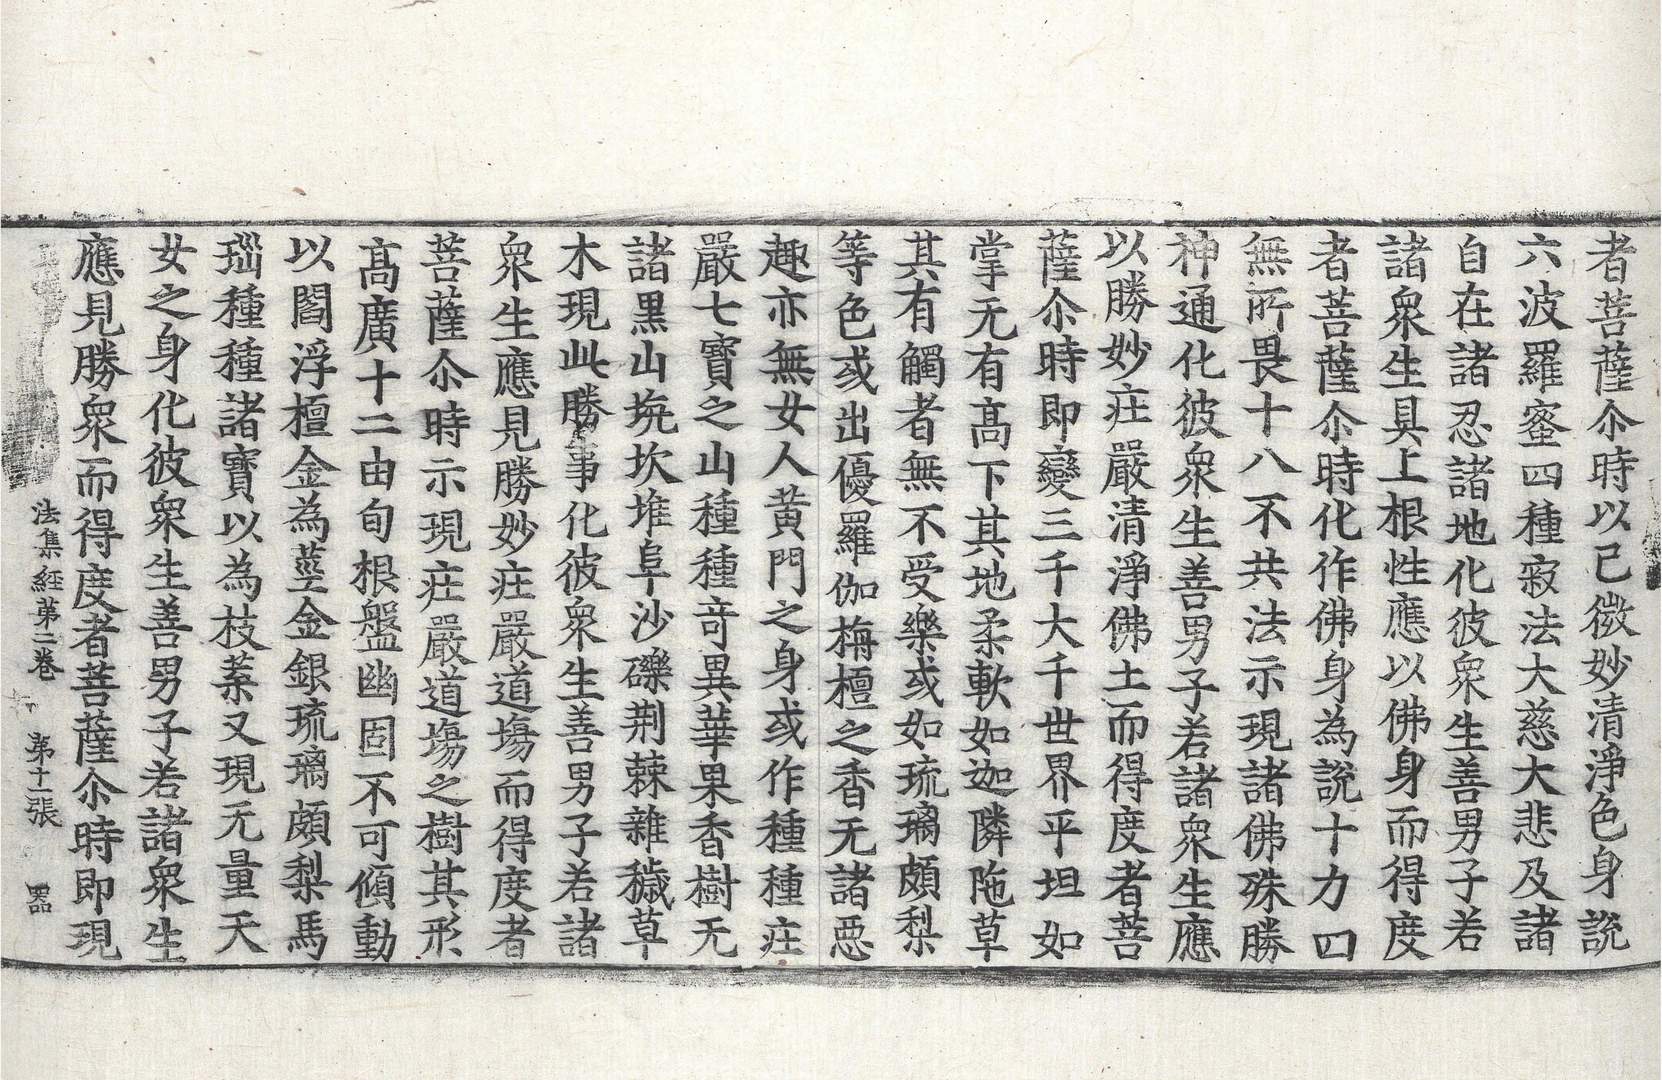 者菩薩尒時以己微妙清淨色身說
六波羅蜜四種㝛法大慈大悲及諸
自在諸忍諸地化彼衆生善男子若
諸衆生具上根性應以佛身而得度
者菩薩尒時化作佛身為說十力四
無所畏十八不共法示現諸佛殊勝
神通化彼衆生善男子若諸衆生應
以勝妙庄嚴清淨佛土而得度者菩
薩尒時即變三千大千世界平坦如
掌无有高下其地柔軟如迦隣陁草
其有觸者無不受樂或如琉璃頗梨
等色或出優羅伽栴檀之香无諸惡
趣亦無女人黃門之身或作種種庄
嚴七寶之山種種竒異華果香樹无
諸黒山坑坎堆阜沙礫荆棘雜穢草
木現此勝事化彼衆生善男子若諸
衆生應見勝妙庄嚴道塲而得度者
菩薩尒時示現庄嚴道塲之樹其形
高廣十二由旬根盤幽固不可傾動
以閻浮檀金為莖金銀琉璃頗梨馬
瑙種種諸寶以為枝葉又現无量天
女之身化彼衆生善男子若諸衆生
應見勝衆而得度者菩薩尒時即現
法集經第二卷 第十二張 器